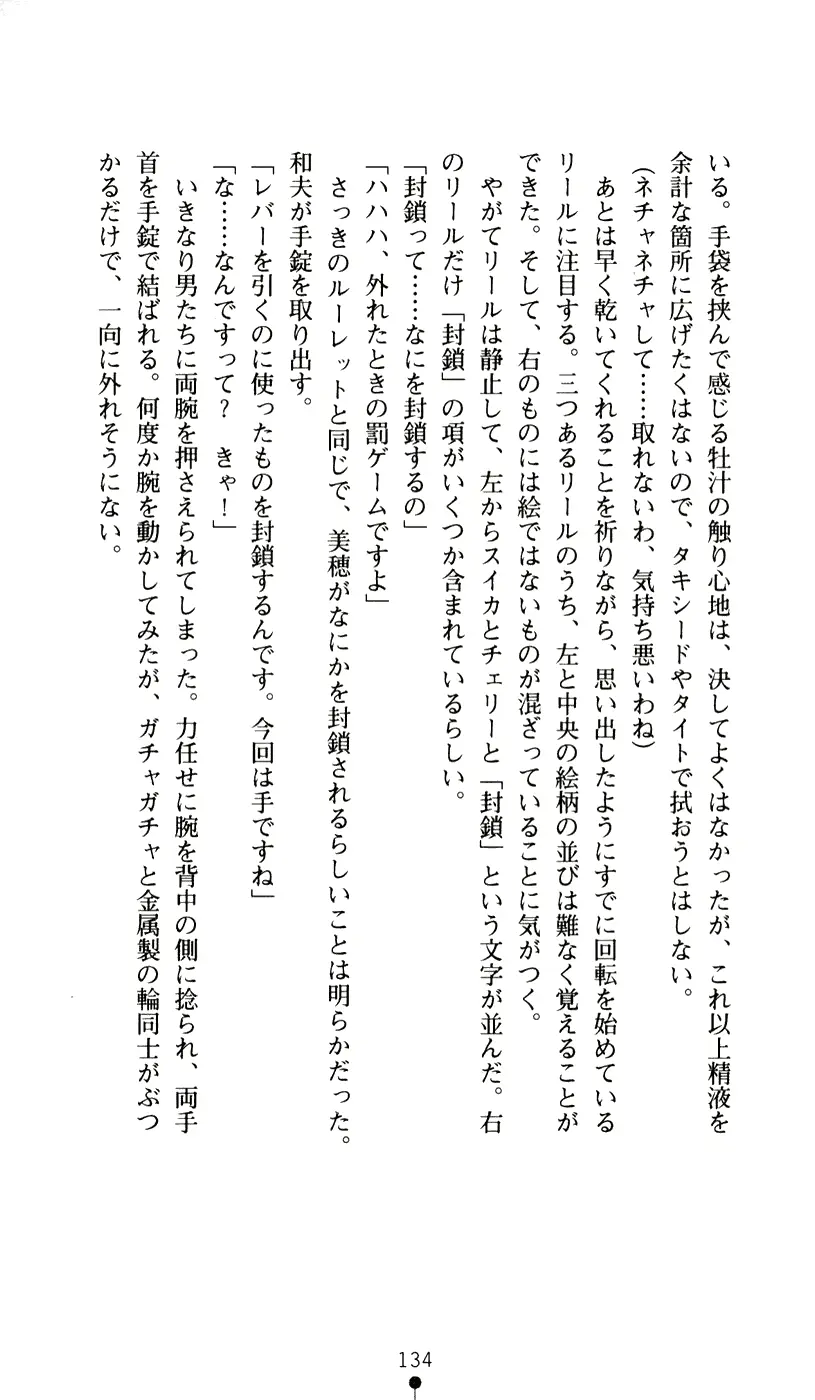 いる。手袋を挟んで感じる牡汁の触り心地は、決してよくはなかったが、これ以上精液を
余計な箇所に広げたくはないので、タキシードやタイトで拭おうとはしない。
(ネチャネチャして……取れないわ、気持ち悪いわね)
あとは早く乾いてくれることを祈りながら、思い出したようにすでに回転を始めている
リールに注目する。三つあるリールのうち、左と中央の絵柄の並びは難なく覚えることが
できた。そして、右のものには絵ではないものが混ざっていることに気がつく。
やがてリールは静止して、左からスイカとチェリーと「封鎖」という文字が並んだ。右
のリールだけ「封鎖」の項がいくつか含まれているらしい。
「封鎖って……なにを封鎖するの」
「ハハハ、外れたときの罰ゲームですよ」
さっきのルーレットと同じで、美穂がなにかを封鎖されるらしいことは明らかだった。
和夫が手錠を取り出す。
「レバーを引くのに使ったものを封鎖するんです。今回は手ですね」
「な……なんですって?　きゃ!」
いきなり男たちに両腕を押さえられてしまった。力任せに腕を背中の側に捻られ、両手
首を手錠で結ばれる。何度か腕を動かしてみたが、ガチャガチャと金属製の輪同士がぶつ
かるだけで、一向に外れそうにない。
134